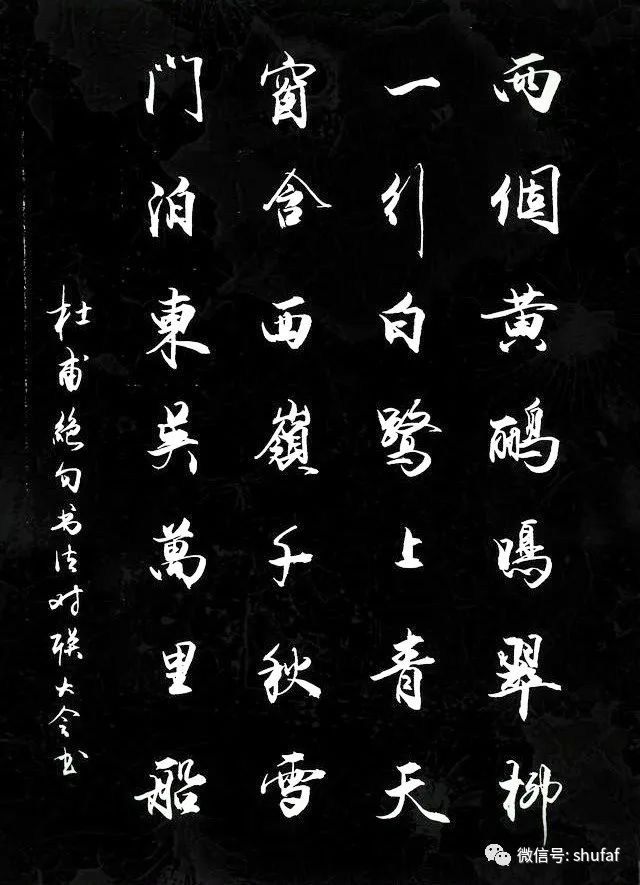 兩個黄鸝鳴翠柳
一行白鹭上青天
窗含西嶺千秋雪
門泊東吳萬里船
杜甫絕句书法对联大会书
微信号: shufaf